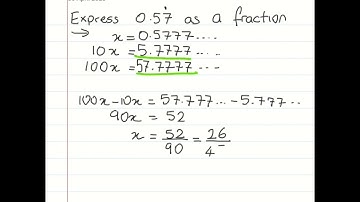 Express 0.57̇ as a fraction
→ x = 0.5777....
10x = 5.7777....
100x = 57.7777....
100x - 10x = 57.777... - 5.777..
90x = 52
x = 52/90 = 26/4